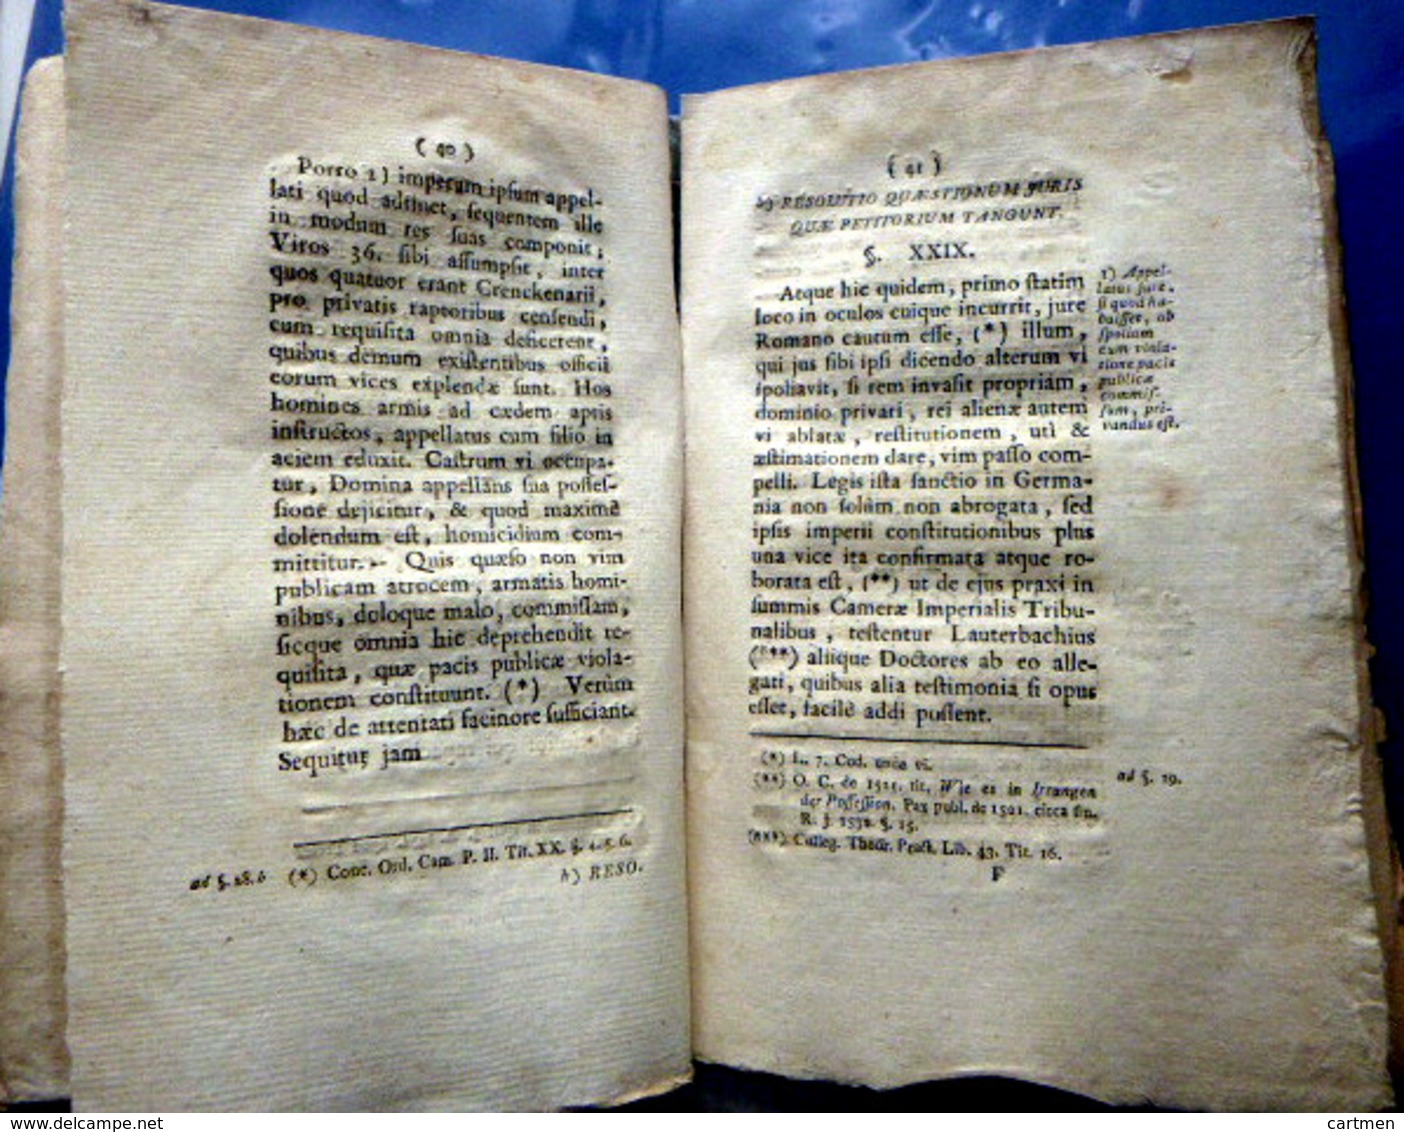 ( 40 )
Porro 2) imperum ipſum appel-
lati quod adtinet, ſequentem ille
in modum res ſuas componit;
Viros 36. ſibi aſſumpſit, inter
quos quatuor erant Crenckenarii,
pro privatis raptoribus cenſendi,
cum requiſita omnia deficerent,
quibus demum exiſtentibus officii
eorum vices explendæ ſunt. Hos
homines armis ad cædem aptis
inſtructos, appellatus cum filio in
aciem eduxit. Caſtrum vi occupa-
tur, Domina appellans ſua poſſeſ-
ſione dejicitur, & quod maximè
dolendum eſt, homicidium com-
mittitur. Quis quæſo non vim
publicam atrocem, armatis homi-
nibus, doloque malo, commiſſam,
ſicque omnia hic deprehendit re-
quiſita, quæ pacis publicæ viola-
tionem conſtituunt. (*) Verùm
hæc de attentati facinore ſufficiant.
Sequitur jam
ad §. 28. b (*) Conc. Ord. Cam. P. II. Tit. XX. §. 4. 5. 6.
b) RESO.
( 41 )
b) RESOLUTIO QUÆSTIONUM JURIS
QUÆ PETITORIUM TANGUNT.
§. XXIX.
Atque hic quidem, primo ſtatim
loco in oculos cuique incurrit, jure
Romano cautum eſſe, (*) illum,
qui jus ſibi ipſi dicendo alterum vi
ſpoliavit, ſi rem invaſit propriam,
dominio privari, rei alienæ autem
vi ablatæ, reſtitutionem, uti &
æſtimationem dare, vim paſſo com-
pelli. Legis iſta ſanctio in Germa-
nia non ſolùm non abrogata, ſed
ipſis imperii conſtitutionibus plus
una vice ita confirmata atque ro-
borata eſt, (**) ut de ejus praxi in
ſummis Cameræ Imperialis Tribu-
nalibus, teſtentur Lauterbachius
(***) aliique Doctores ab eo alle-
gati, quibus alia teſtimonia ſi opus
eſſet, facilè addi poſſent.
1) Appel-
latus jure,
ſi quod ha-
buiſſet, ob
ſpolium
cum viola-
tione pacis
publicæ
commiſ-
ſum, pri-
vandus eſt.
(*) L. 7. Cod. unde vi.
(**) O. C. de 1521. tit. Wie es in Irrungen
der Poſſeſſion. Pax publ. de 1521. circa fin.
R. J. 1532. §. 15.
(***) Colleg. Theor. Pract. Lib. 43. Tit. 16.
ad §. 29.
F
cartmen